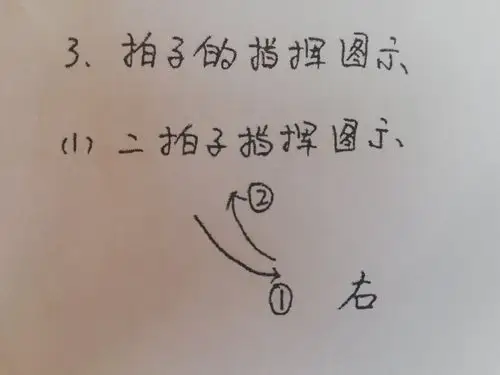 3、拍子的指挥图示
(1)二拍子指挥图示
②
① 右